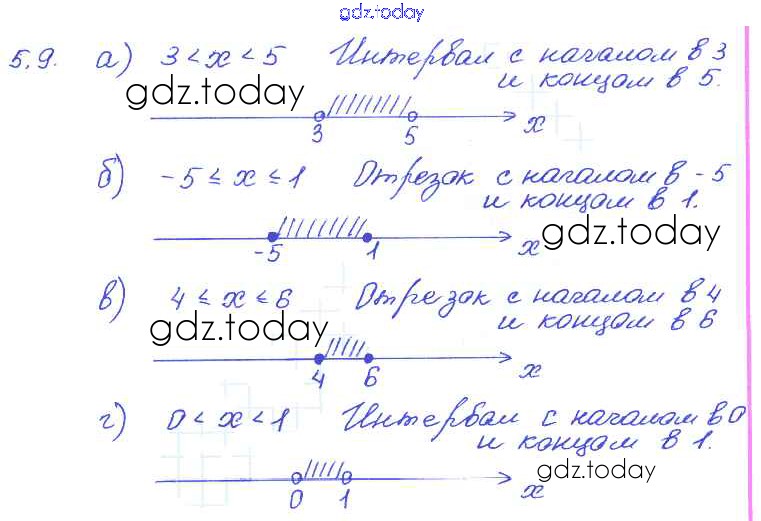 gdz.today
5.9. а) 3 < x < 5 Интервал с началом в 3
и концом в 5.
gdz.today
3 5 x
б) -5 ≤ x ≤ 1 Отрезок с началом в -5
и концом в 1.
gdz.today
-5 1 x
в) 4 ≤ x ≤ 6 Отрезок с началом в 4
и концом в 6
gdz.today
4 6 x
г) 0 < x < 1 Интервал с началом в 0
и концом в 1.
gdz.today
0 1 x